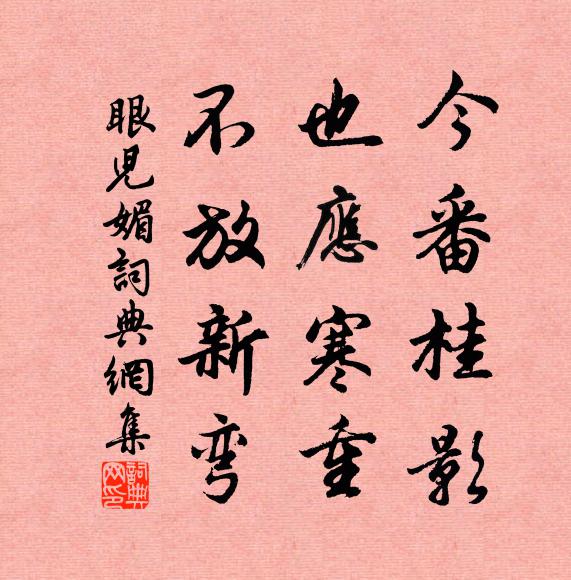 今番桂影
也應寒重
不放新彎
眼児媚詞典網集
詞典网印